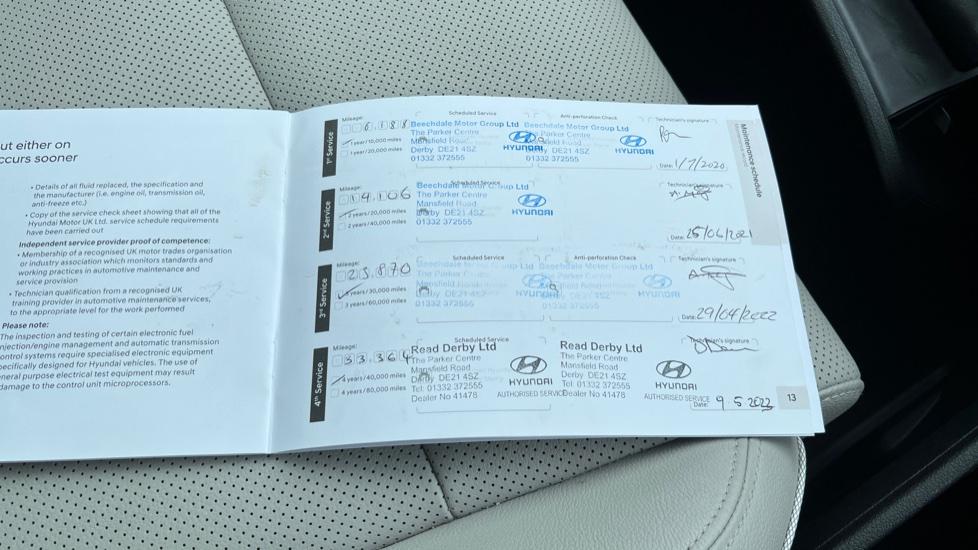 ut either on
ccurs sooner
• Details of all fluid replaced, the specification and
the manufacturer (i.e. engine oil, transmission oil,
anti-freeze etc.)
• Copy of the service check sheet showing that all of the
Hyundai Motor UK Ltd. service schedule requirements
have been carried out
Independent service provider proof of competence:
• Membership of a recognised UK motor trades organisation
or industry association which monitors standards and
working practices in automotive maintenance and
service provision
• Technician qualification from a recognised UK
training provider in automotive maintenance/services,
to the appropriate level for the work performed
Please note:
The inspection and testing of certain electronic fuel
njection/engine management and automatic transmission
ontrol systems require specialised electronic equipment
pecifically designed for Hyundai vehicles. The use of
neral purpose electrical test equipment may result
damage to the control unit microprocessors.
Maintenance schedule
1st Service
Mileage:
6,188
1 years/10,000 miles
1 years/20,000 miles
Scheduled Service
Beechdale Motor Group Ltd
The Parker Centre
Mansfield Road
Derby DE21 4SZ
01332 372555
HYUNDAI
Anti-perforation Check
Beechdale Motor Group Ltd
The Parker Centre
Mansfield Road
Derby DE21 4SZ
01332 372555
HYUNDAI
Technician's signature
Date: 1/7/2020
2nd Service
Mileage:
19,106
2 years/20,000 miles
2 years/40,000 miles
Scheduled Service
Beechdale Motor Group Ltd
The Parker Centre
Mansfield Road
Derby DE21 4SZ
01332 372555
HYUNDAI
Technician's signature
Date: 25/06/2021
3rd Service
Mileage:
25,870
3 years/30,000 miles
3 years/60,000 miles
Scheduled Service
Beechdale Motor Group Ltd
The Parker Centre
Mansfield Road
Derby DE21 4SZ
01332 372555
HYUNDAI
Anti-perforation Check
Beechdale Motor Group Ltd
The Parker Centre
Mansfield Road
Derby DE21 4SZ
01332 372555
HYUNDAI
Technician's signature
Date: 29/04/2022
4th Service
Mileage:
33,364
4 years/40,000 miles
4 years/80,000 miles
Scheduled Service
Read Derby Ltd
The Parker Centre
Mansfield Road
Derby DE21 4SZ
Tel: 01332 372555
Dealer No 41478
HYUNDAI
AUTHORISED SERVICE
Read Derby Ltd
The Parker Centre
Mansfield Road
Derby DE21 4SZ
Tel: 01332 372555
Dealer No 41478
HYUNDAI
AUTHORISED SERVICE
Technician's signature
Date: 9.5.2023
13